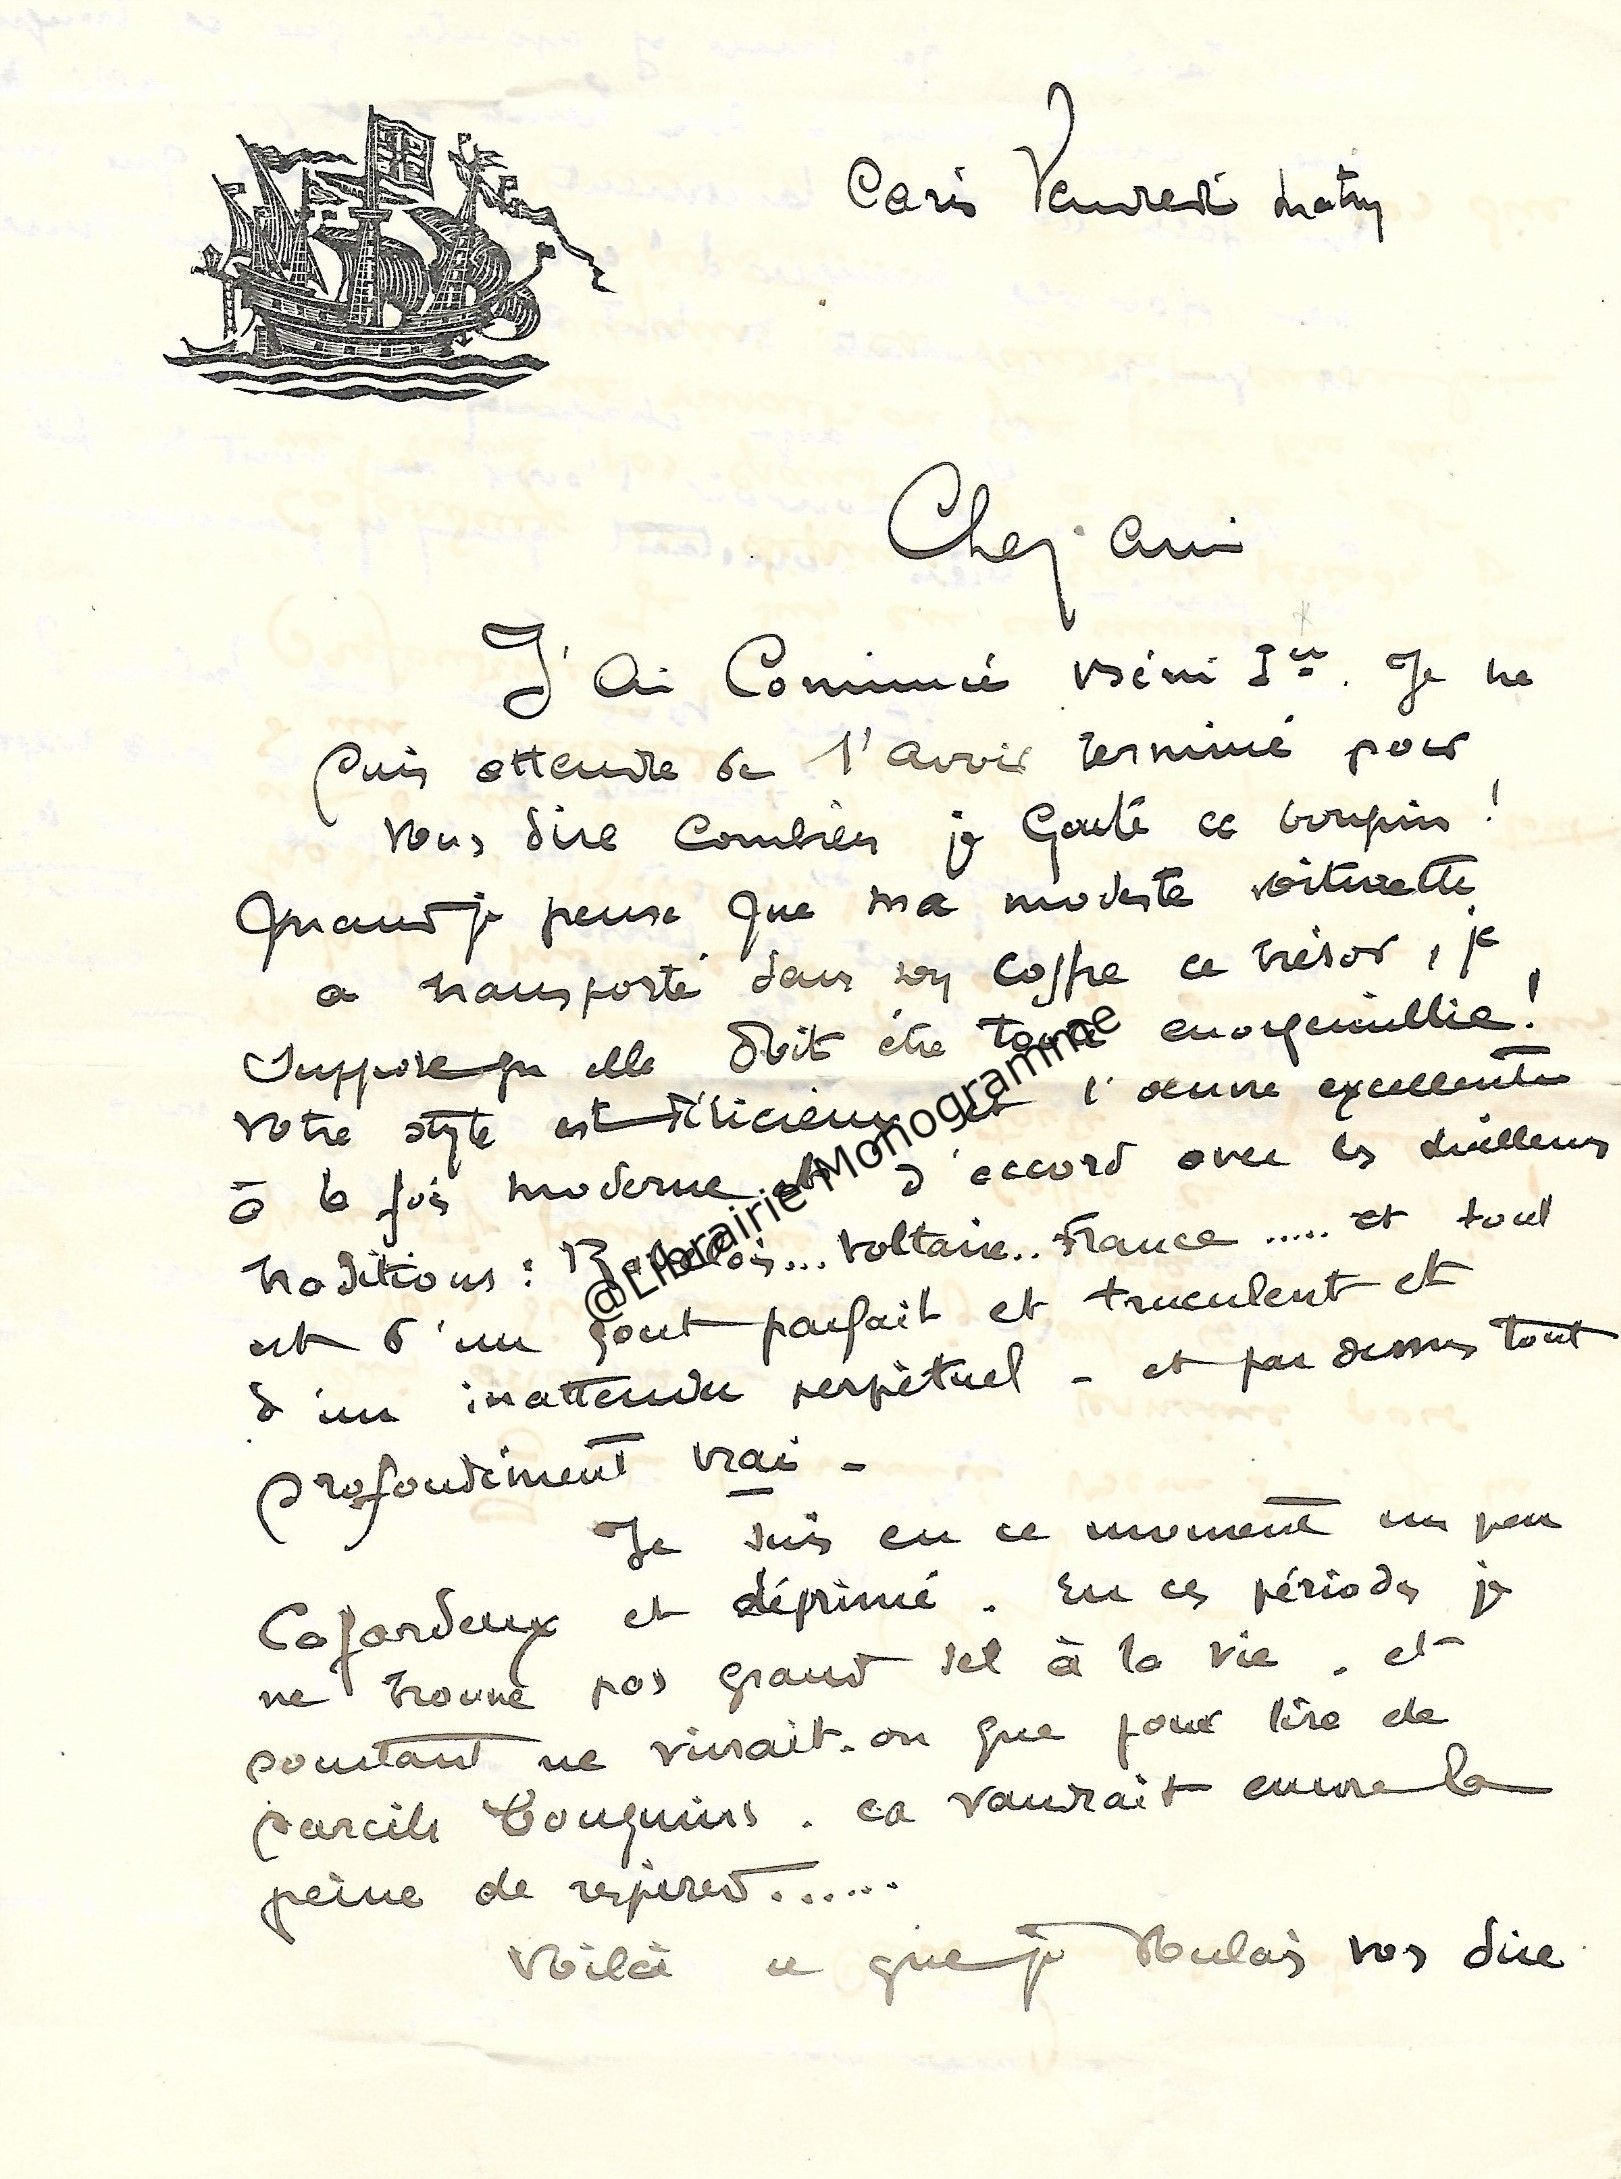 Paris Vendredi matin
Cher ami
J'ai commencé Ier. Je ne
puis attendre de l'avoir terminé pour
vous dire combien je goute ce bouquin !
Quand je pense que ma modeste voiturette
a transporté dans son coffre ce trésor, je
suppose qu'elle doit être toute enorgueillie !
Votre style est délicieux et l'œuvre excellente
à la fois moderne et d'accord avec les meilleures
traditions : Rabelais... Voltaire.. France ..... et tout
est d'un gout parfait et truculent et
d'un inattendu perpétuel - et par dessus tout
profondément vrai -
Je suis en ce moment un peu
cafardeux et déprimé. En ces périodes je
ne trouve pas grand sel à la vie. et
pourtant ne vivrait-on que pour lire de
pareils bouquins. ca vaudrait encore la
peine de respirer......
Voilà ce que je voulais vous dire
@Librairie Monogramme